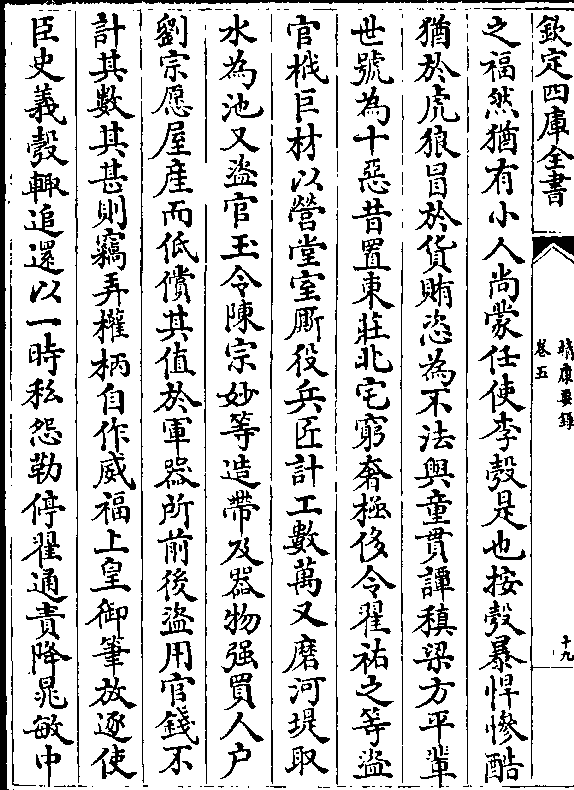 欽定四庫全書
靖康要録
卷五
十九
之福然猶有小人尚蒙任使李彀是也按彀暴悍慘酷
猶於虎狼冒於貨賄恣為不法與童貫譚稹梁方平輩
世號為十惡昔置東莊北宅窮奢極侈令翟祐之等盜
官栰巨材以營堂室廝役兵匠計工數萬又磨河堤取
水為池又盜官玉令陳宗妙等造帶及器物强買人户
劉宗愿屋産而低償其值於軍器所前後盜用官錢不
計其數其甚則竊弄權柄自作威福上皇御筆放逐使
臣史義彀輙追還以一時私怨勒停翟通責降晁敏中